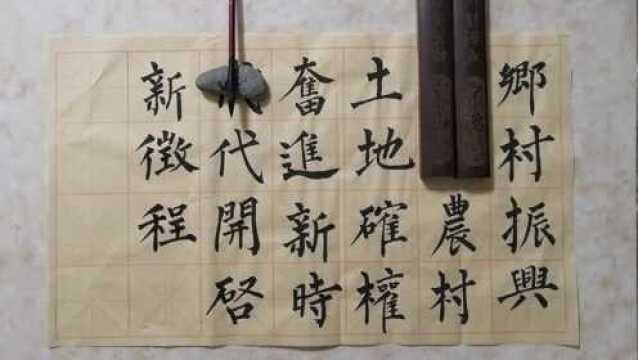 鄉村振興
農村
土地確權
奮進新時
代開啓
新徵程